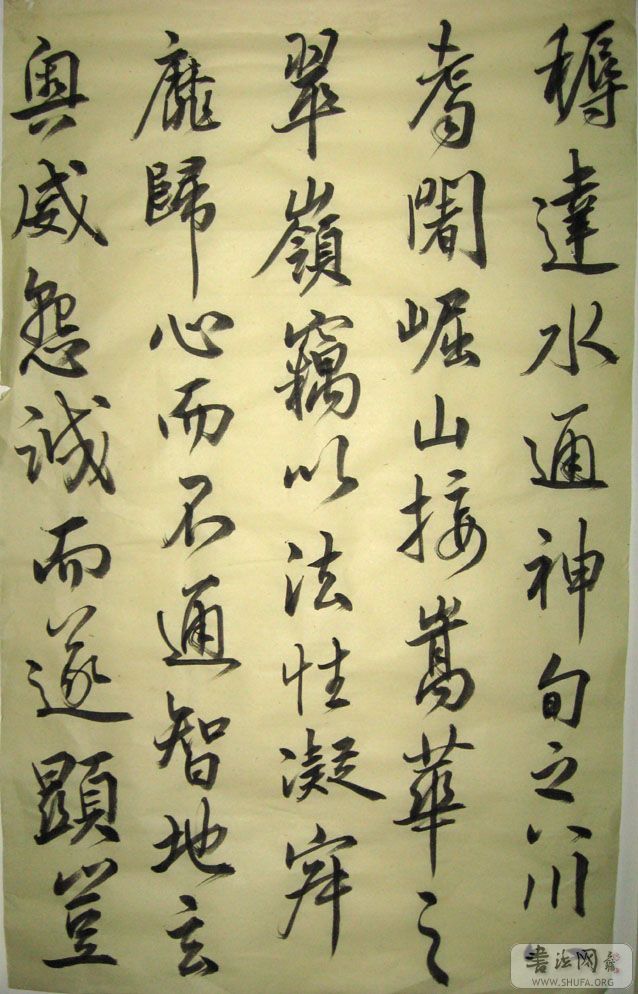 耨達水通神甸之八川
耆闍崛山接嵩華之
翠嶺竊以法性凝寂
靡歸心而不通智地玄
奧感懇誠而遂顯豈
書法网
WWW.SHUFA.ORG